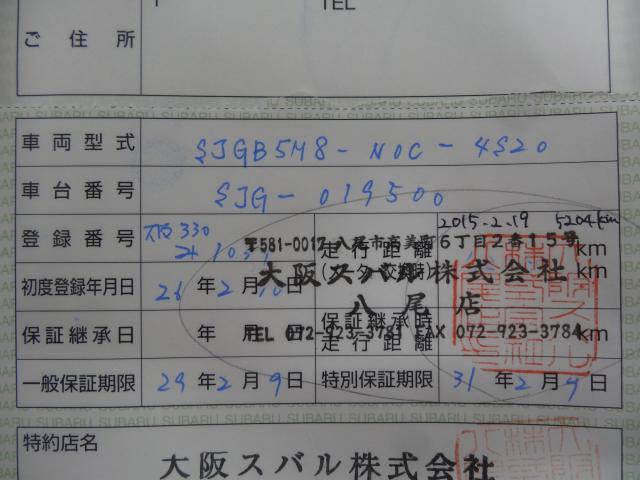 TEL
ご住所
SUBARU SUBARU SUBARU SUBARU SUBARU
車両型式 SJGB5M8-NOC-4S20
車台番号 SJG-019500
2015-2.19 5204km
登録番号 大阪330 走行距離 km
〒581-0017 八尾市高美町6丁目2番15号
(メーター交換時) km
大阪スバル株式会社
初度登録年月日 26年2月10日
八尾店
保証継承日 年 月 日 保証継承時走行距離 km
TEL 072-923-3781 FAX 072-923-3784
一般保証期限 29年2月9日 特別保証期限 31年2月9日
SUBARU SUBARU SUBARU SUBARU SUBARU
特約店名
大阪スバル株式会社